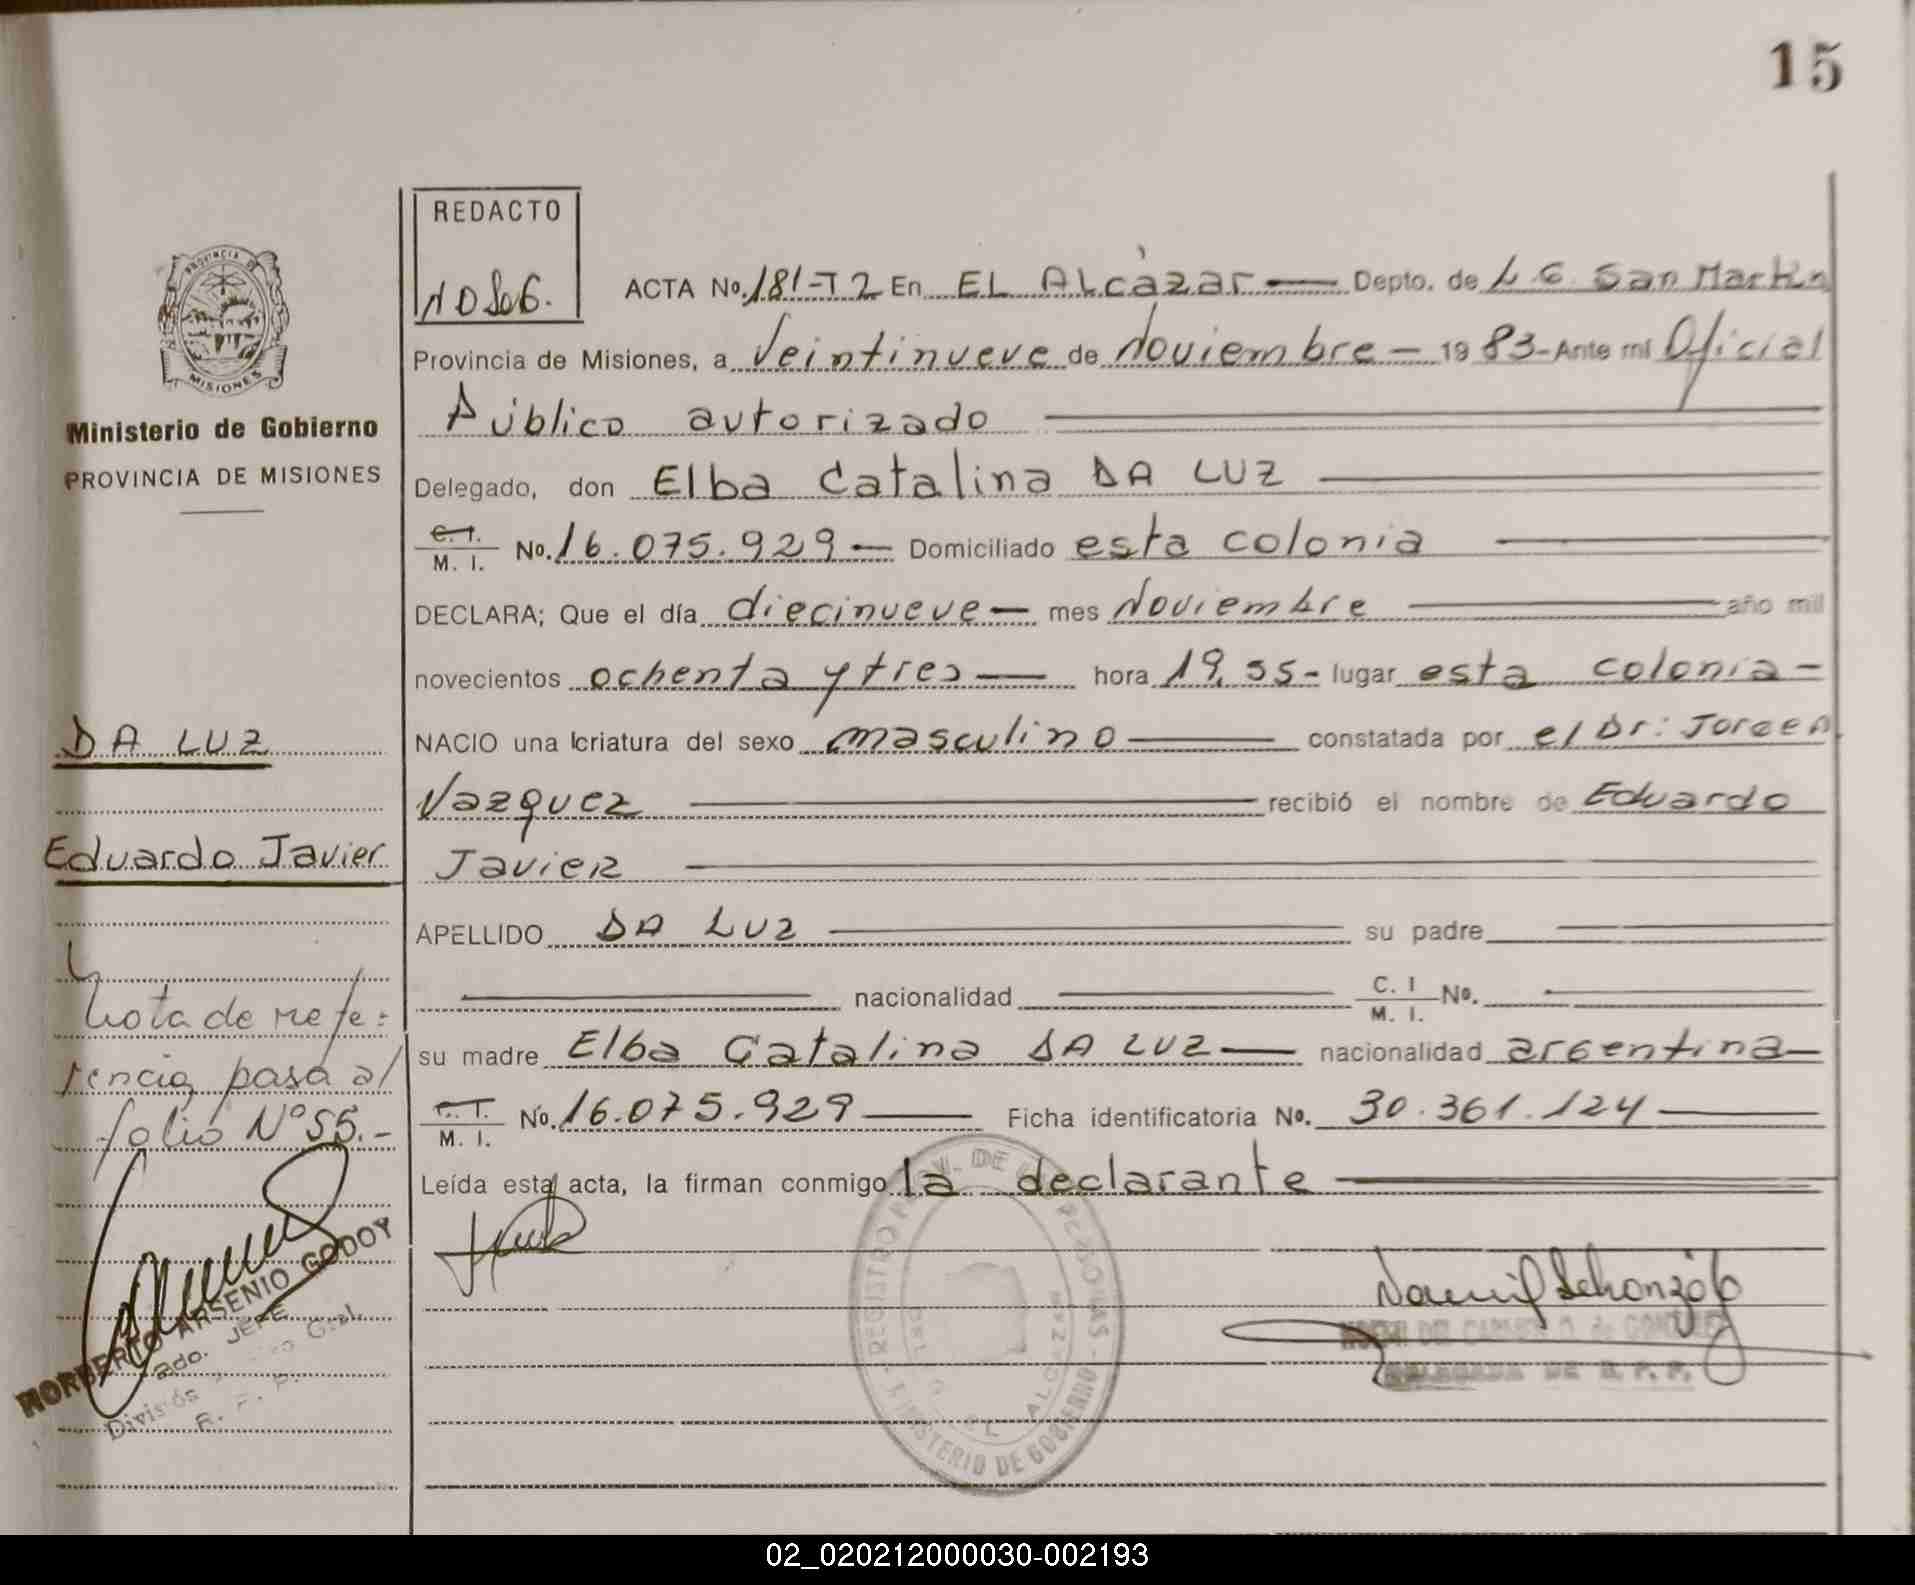 15
REDACTO
PROVINCIA DE
MISIONES
Ministerio de Gobierno
PROVINCIA DE MISIONES
ACTA No. 181-T2 En EL Alcázar Depto. de L G. San Martín
Provincia de Misiones, a Veintinueve de Noviembre - 19 83- Ante mi Oficial
Público autorizado
Delegado, don Elba Catalina DA LUZ
C. I. M. I. No. 16.075.929 - Domiciliado esta colonia
DECLARA; Que el día diecinueve - mes Noviembre año mil
novecientos ochenta y tres hora 19,55- lugar esta colonia -
NACIO una criatura del sexo masculino constatada por el Dr: Jorge A
Vazquez recibió el nombre de Eduardo
Javier
APELLIDO DA LUZ su padre
nacionalidad C. I M. I. No.
su madre Elba Catalina DA LUZ nacionalidad argentina
C. I. M. I. No. 16.075.929 Ficha identificatoria No. 30.361.124
Leída esta acta, la firman conmigo la declarante
DA LUZ
Eduardo Javier
Nota de refe-
rencia pasa al
folio Nº 55.-
NORBERTO ARSENIO GODOY
JEFE
REGISTRO PROV. DE LAS PERSONAS - MINISTERIO DE GOBIERNO
EL ALCAZAR
DEL CARMEN
DELEGADA DE R. P. P.
02_020212000030-002193